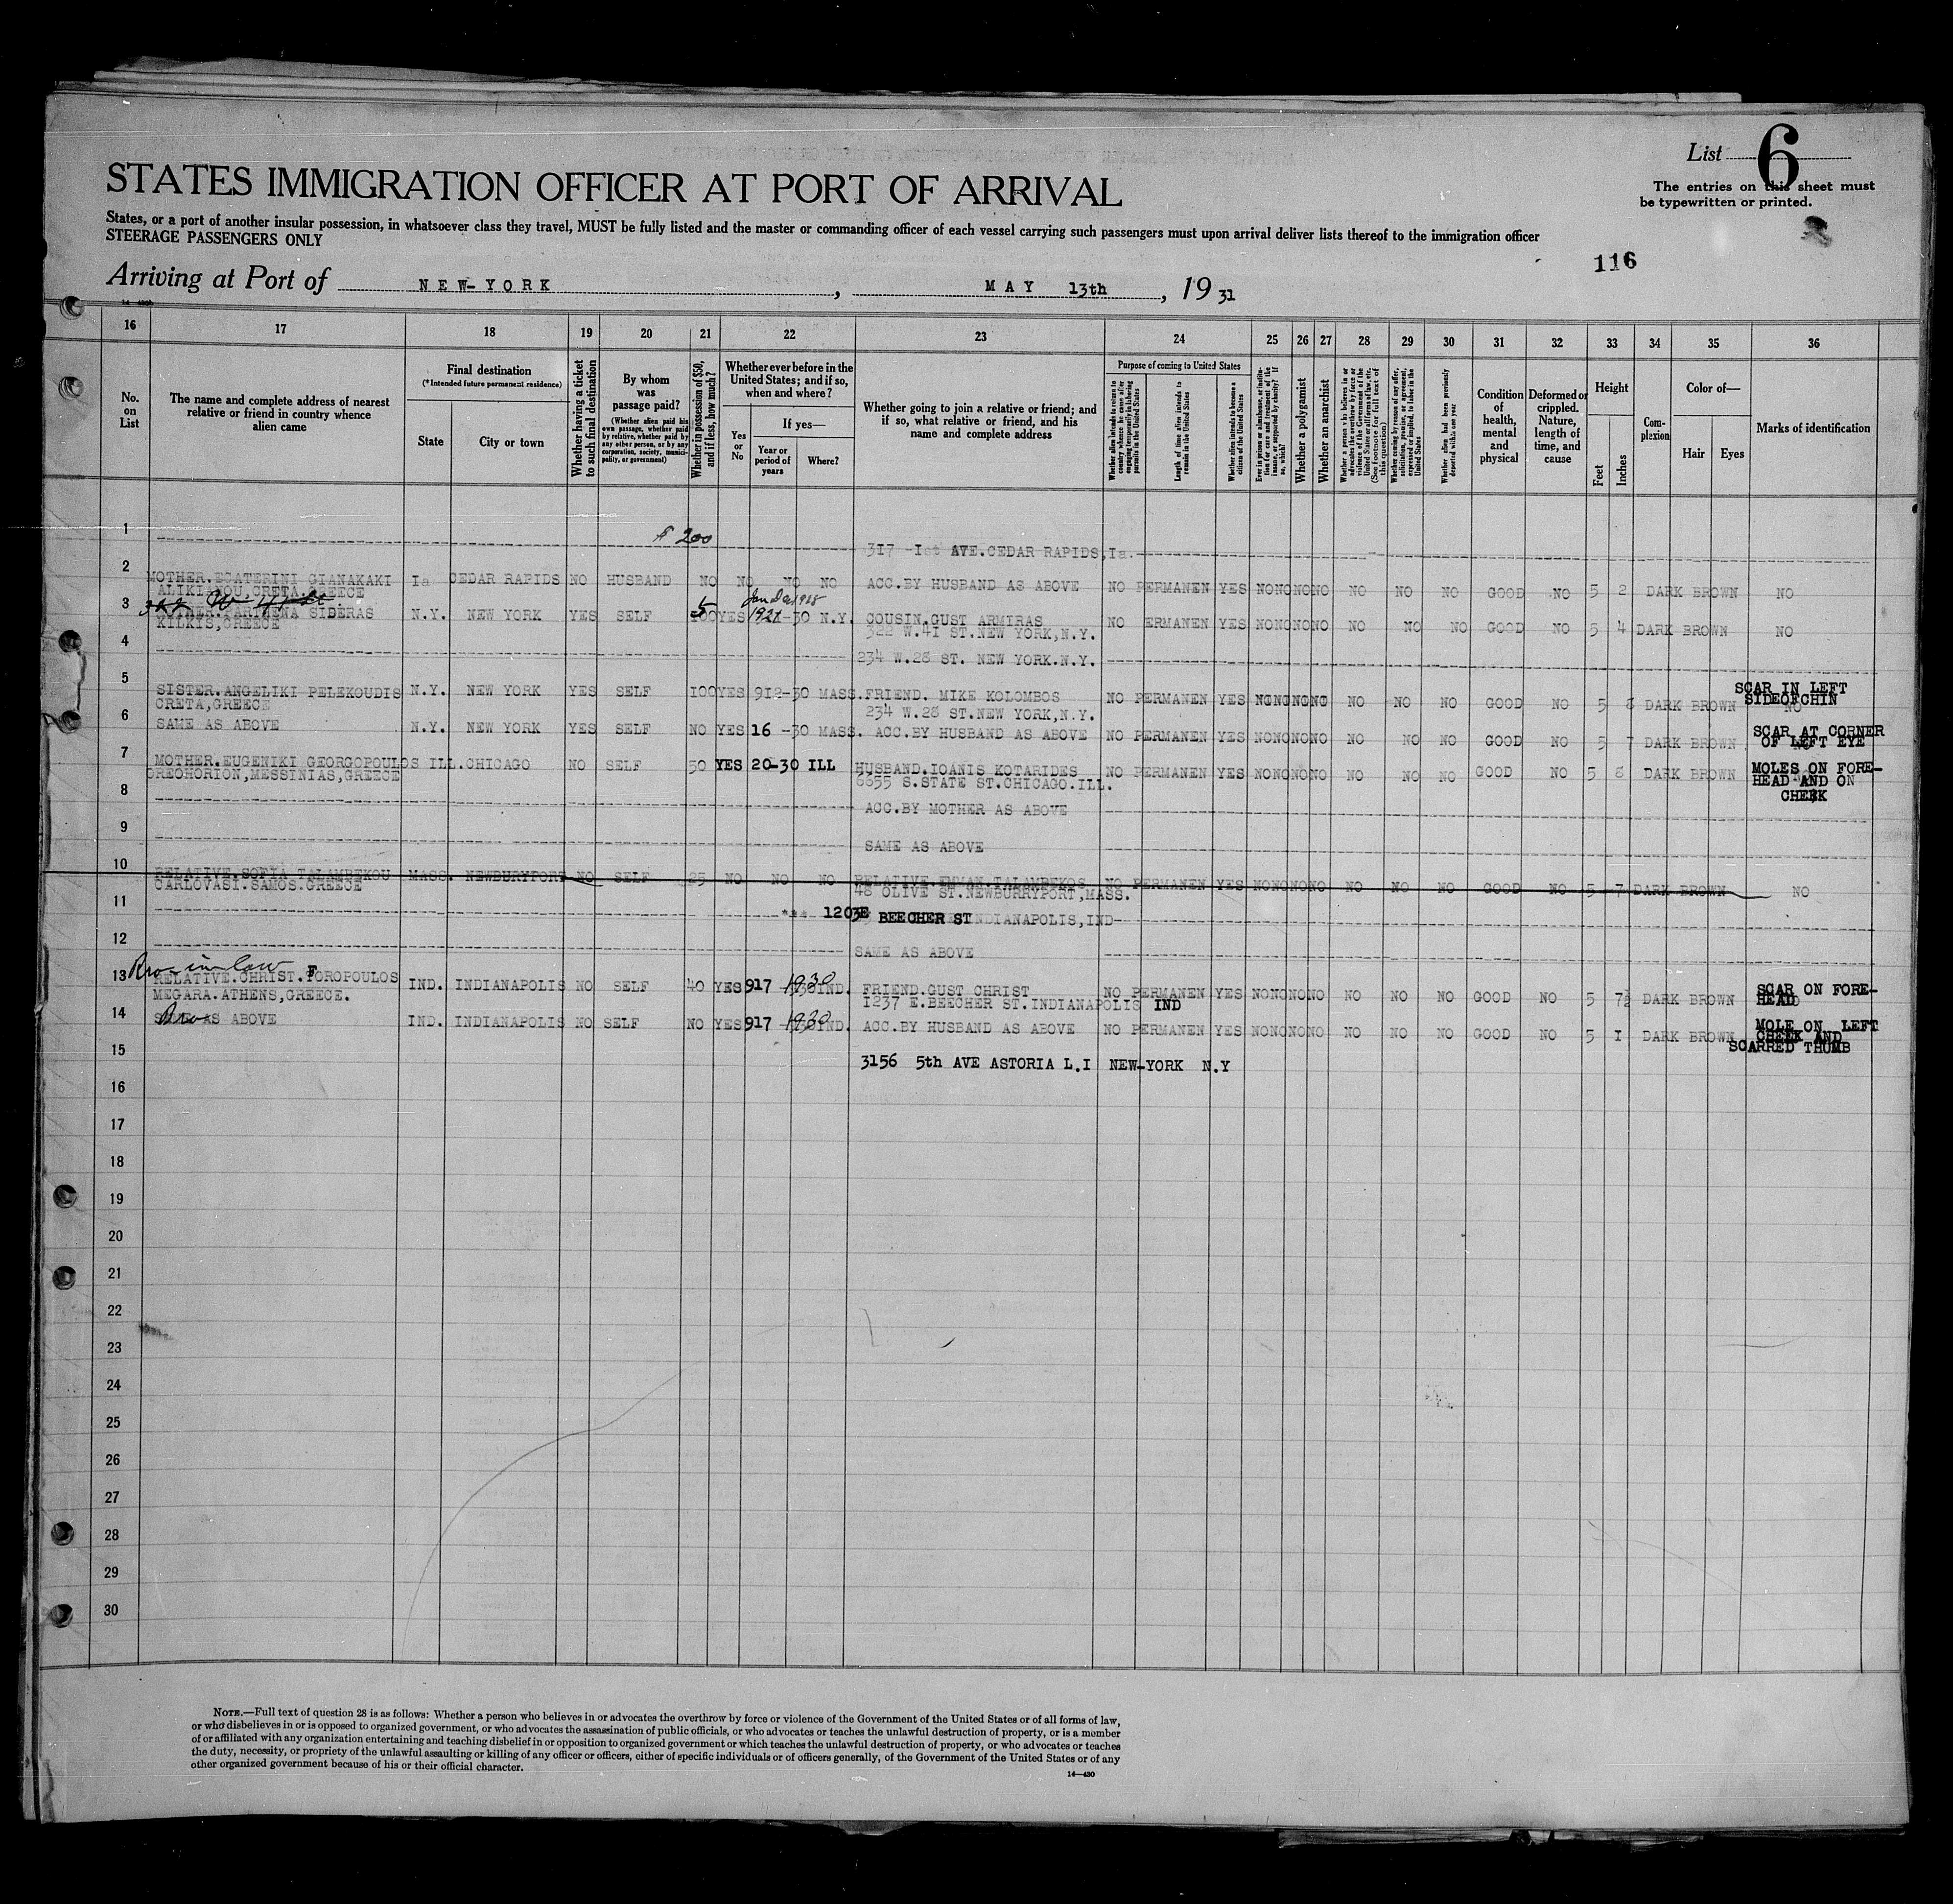 List 6
The entries on this sheet must
be typewritten or printed.
STATES IMMIGRATION OFFICER AT PORT OF ARRIVAL
States, or a port of another insular possession, in whatsoever class they travel, MUST be fully listed and the master or commanding officer of each vessel carrying such passengers must upon arrival deliver lists thereof to the immigration officer
STEERAGE PASSENGERS ONLY
116
Arriving at Port of NEW-YORK, MAY 13th, 19 31
16 17 18 19 20 21 22 23 24 25 26 27 28 29 30 31 32 33 34 35 36
No. on List
The name and complete address of nearest relative or friend in country whence alien came
Final destination
(*Intended future permanent residence)
State
City or town
Whether having a ticket to such final destination
By whom was passage paid?
(Whether alien paid his own passage, whether paid by relative, whether paid by any other person, or by any corporation, society, municipality, or government)
Whether in possession of $50, and if less, how much?
Whether ever before in the United States; and if so, when and where?
Yes or No
If yes—
Year or period of years
Where?
Whether going to join a relative or friend; and if so, what relative or friend, and his name and complete address
Purpose of coming to United States
Whether alien intends to return to country whence he came after engaging temporarily in laboring pursuits in the United States
Length of time alien intends to remain in the United States
Whether alien intends to become a citizen of the United States
Ever in prison or almshouse, or institution for care and treatment of the insane, or supported by charity? If so, which?
Whether a polygamist
Whether an anarchist
Whether a person who believes in or advocates the overthrow by force or violence of the Government of the United States or all forms of law, etc. (See footnote for full text of this question)
Whether coming by reason of any offer, solicitation, promise, or agreement, expressed or implied, to labor in the United States
Whether alien had been previously deported within one year
Condition of health, mental and physical
Deformed or crippled. Nature, length of time, and cause
Height
Feet
Inches
Complexion
Color of—
Hair
Eyes
Marks of identification
1 $ 200
317 -1st AVE.CEDAR RAPIDS,Ia.
2 MOTHER.ECATERINI GIANAKAKI Ia CEDAR RAPIDS NO HUSBAND NO NO NO NO ACC.BY HUSBAND AS ABOVE NO PERMANEN YES NO NO NO NO NO NO NO GOOD NO 5 2 DARK BROWN NO
ALIKIANOU,CRETA.GREECE
322 W 41 St. Jan Dec 1928
3 PARTHENA SIDERAS N.Y. NEW YORK YES SELF 5 100 YES 1921-30 N.Y. COUSIN.GUST ARMIRAS NO ERMANEN YES NO NO NO NO NO NO NO GOOD NO 5 4 DARK BROWN NO
KILKIS,GREECE 322 W.41 ST.NEW YORK,N.Y.
4 234 W.28 ST. NEW YORK.N.Y.
5 SISTER.ANGELIKI PELEKOUDIS N.Y. NEW YORK YES SELF 100 YES 912-30 MASS. FRIEND. MIKE KOLOMBOS NO PERMANEN YES NO NO NO NO NO NO NO GOOD NO 5 8 DARK BROWN SCAR IN LEFT
CRETA,GREECE 234 W.28 ST.NEW YORK,N.Y. SIDEOFCHIN
6 SAME AS ABOVE N.Y. NEW YORK YES SELF NO YES 16 -30 MASS. ACC.BY HUSBAND AS ABOVE NO PERMANEN YES NO NO NO NO NO NO NO GOOD NO 5 7 DARK BROWN SCAR AT CORNER
OF LEFT EYE
7 MOTHER.EUGENIKI GEORGOPOULOS ILL. CHICAGO NO SELF 50 YES 20-30 ILL HUSBAND.IOANIS KOTARIDES NO PERMANEN YES NO NO NO NO NO NO NO GOOD NO 5 8 DARK BROWN MOLES ON FORE-
OREOHORION,MESSINIAS,GREECE 8655 S.STATE ST.CHICAGO.ILL. HEAD AND ON
CHEEK
8 ACC.BY MOTHER AS ABOVE
9 SAME AS ABOVE
10 RELATIVE.SOFIA TALAMBEKOU MASS. NEWBURYPORT NO SELF 25 NO NO NO RELATIVE EMMAN.TALAMBEKOS NO PERMANEN YES NO NO NO NO NO NO NO GOOD NO 5 7 DARK BROWN NO
CARLOVASI.SAMOS.GREECE 48 OLIVE ST.NEWBURRYPORT,MASS.
11 1203E BEECHER ST INDIANAPOLIS,IND
12 SAME AS ABOVE
Bro-in-law
13 RELATIVE.CHRIST.FOROPOULOS IND. INDIANAPOLIS NO SELF 40 YES 917 1930 IND. FRIEND.GUST CHRIST NO PERMANEN YES NO NO NO NO NO NO NO GOOD NO 5 7½ DARK BROWN SCAR ON FORE-
MEGARA.ATHENS,GREECE. 1237 E.BEECHER ST.INDIANAPOLIS IND HEAD
14 Bro SAME AS ABOVE IND. INDIANAPOLIS NO SELF NO YES 917 1930 IND. ACC.BY HUSBAND AS ABOVE NO PERMANEN YES NO NO NO NO NO NO NO GOOD NO 5 1 DARK BROWN MOLE ON LEFT
CHEEK AND
SCARRED THUMB
15 3156 5th AVE ASTORIA L.I NEW-YORK N.Y
16
17
18
19
20
21
22
23
24
25
26
27
28
29
30
NOTE.—Full text of question 28 is as follows: Whether a person who believes in or advocates the overthrow by force or violence of the Government of the United States or of all forms of law,
or who disbelieves in or is opposed to organized government, or who advocates the assassination of public officials, or who advocates or teaches the unlawful destruction of property, or is a member
of or affiliated with any organization entertaining and teaching disbelief in or opposition to organized government or which teaches the unlawful destruction of property, or who advocates or teaches
the duty, necessity, or propriety of the unlawful assaulting or killing of any officer or officers, either of specific individuals or of officers generally, of the Government of the United States or of any
other organized government because of his or their official character.
14—430